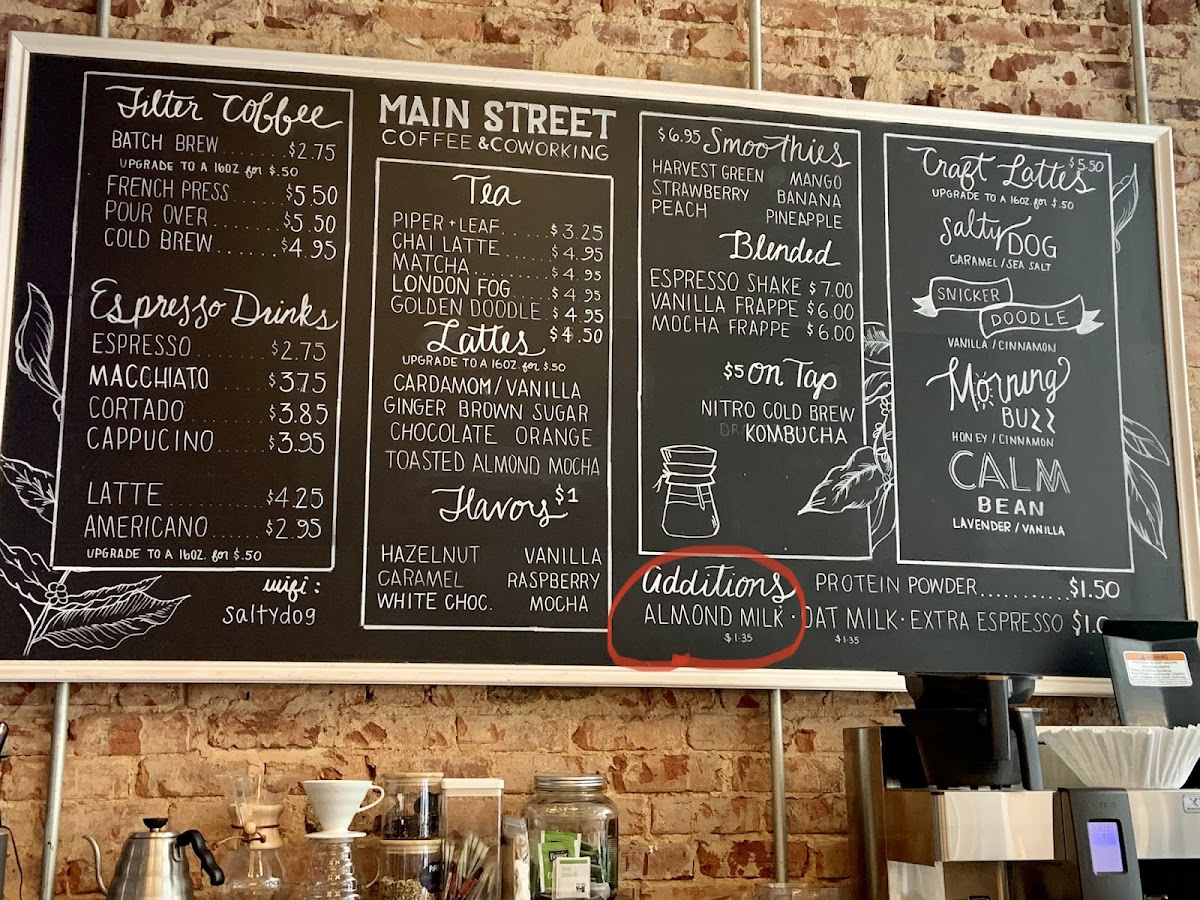 Filter Coffee
BATCH BREW........$2.75
UPGRADE TO A 16OZ for $.50
FRENCH PRESS......$5.50
POUR OVER........$5.50
COLD BREW.......$4.95
Espresso Drinks
ESPRESSO.........$2.75
MACCHIATO......$3.75
CORTADO........$3.85
CAPPUCINO......$3.95
LATTE...........$4.25
AMERICANO......$2.95
UPGRADE TO A 16OZ. for $.50
wifi:
saltydog
MAIN STREET
COFFEE & COWORKING
Tea
PIPER + LEAF......$3.25
CHAI LATTE......$4.95
MATCHA.........$4.95
LONDON FOG....$4.95
GOLDEN DOODLE..$4.95
Lattes $4.50
UPGRADE TO A 16OZ. for $.50
CARDAMOM/VANILLA
GINGER BROWN SUGAR
CHOCOLATE ORANGE
TOASTED ALMOND MOCHA
Flavors $1
HAZELNUT VANILLA
CARAMEL RASPBERRY
WHITE CHOC. MOCHA
$6.95 Smoothies
HARVEST GREEN MANGO
STRAWBERRY BANANA
PEACH PINEAPPLE
Blended
ESPRESSO SHAKE $7.00
VANILLA FRAPPE $6.00
MOCHA FRAPPE $6.00
$5 on Tap
NITRO COLD BREW
KOMBUCHA
Craft Lattes $5.50
UPGRADE TO A 16OZ. for $.50
Salty DOG
CARAMEL/SEA SALT
SNICKER
DOODLE
VANILLA/CINNAMON
Morning
BUZZ
HONEY/CINNAMON
CALM
BEAN
LAVENDER/VANILLA
Additions PROTEIN POWDER...........$1.50
ALMOND MILK · OAT MILK · EXTRA ESPRESSO
$1.35 $1.35